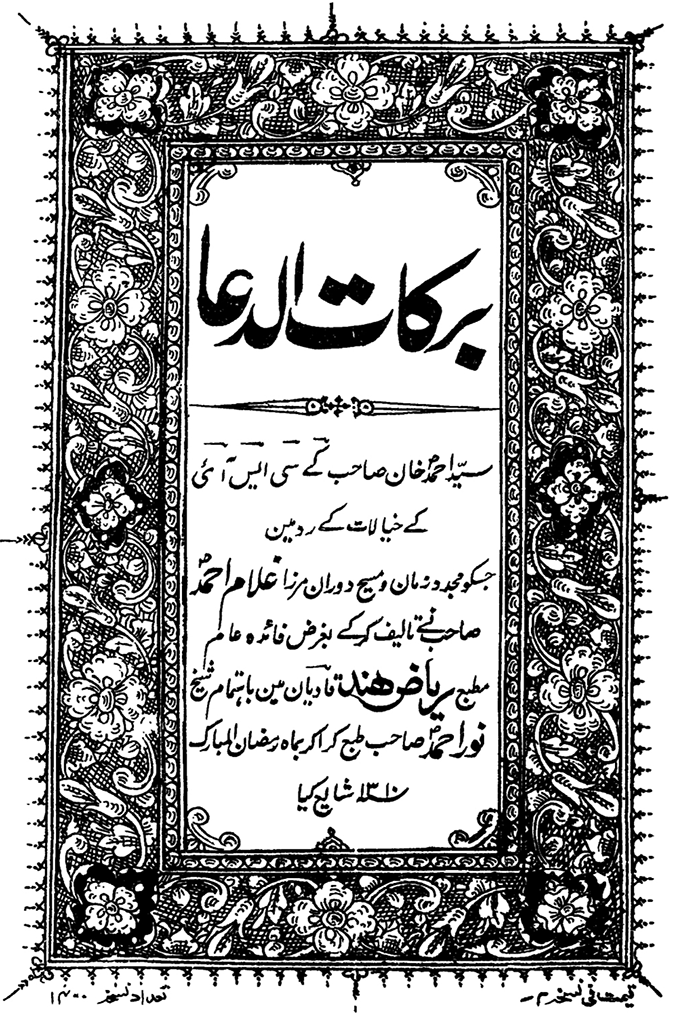 برکات الدعا
سید احمد خان صاحب کے سی ایس آئی
کے خیالات کے رد مین
جسکو مجدد زمان و مسیح دوران مرزا غلام احمد
صاحب نے تالیف کرکے بغرض فائدہ عام
مطبع ریاض ھند قادیان مین باہتمام شیخ
نور احمد صاحب طبع کراکر بماہ رمضان المبارک
۱۳۱۰ شایع کیا
قیمت فی نسخہ
تعداد نسخہ